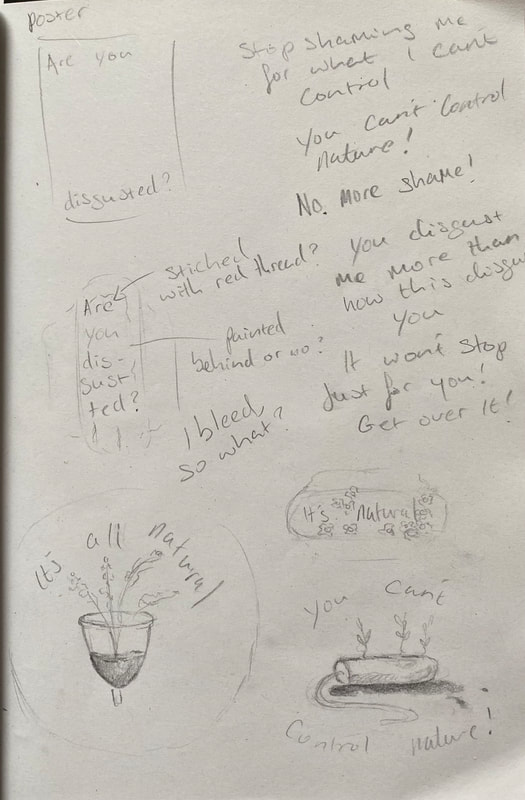 Poster
Are you
disgusted?
Stop shaming me
for what I can't
control
You can't control
nature!
No more shame!
You disgust
me more than
how this disgu
you
It won't stop
Just for you!
Get over It!
Stiched
with red thread?
Are
you
dis-
gust
ted?
painted
behind or no?
I bleed,
so what?
It's all natural
It's natural
You can't
Control nature!